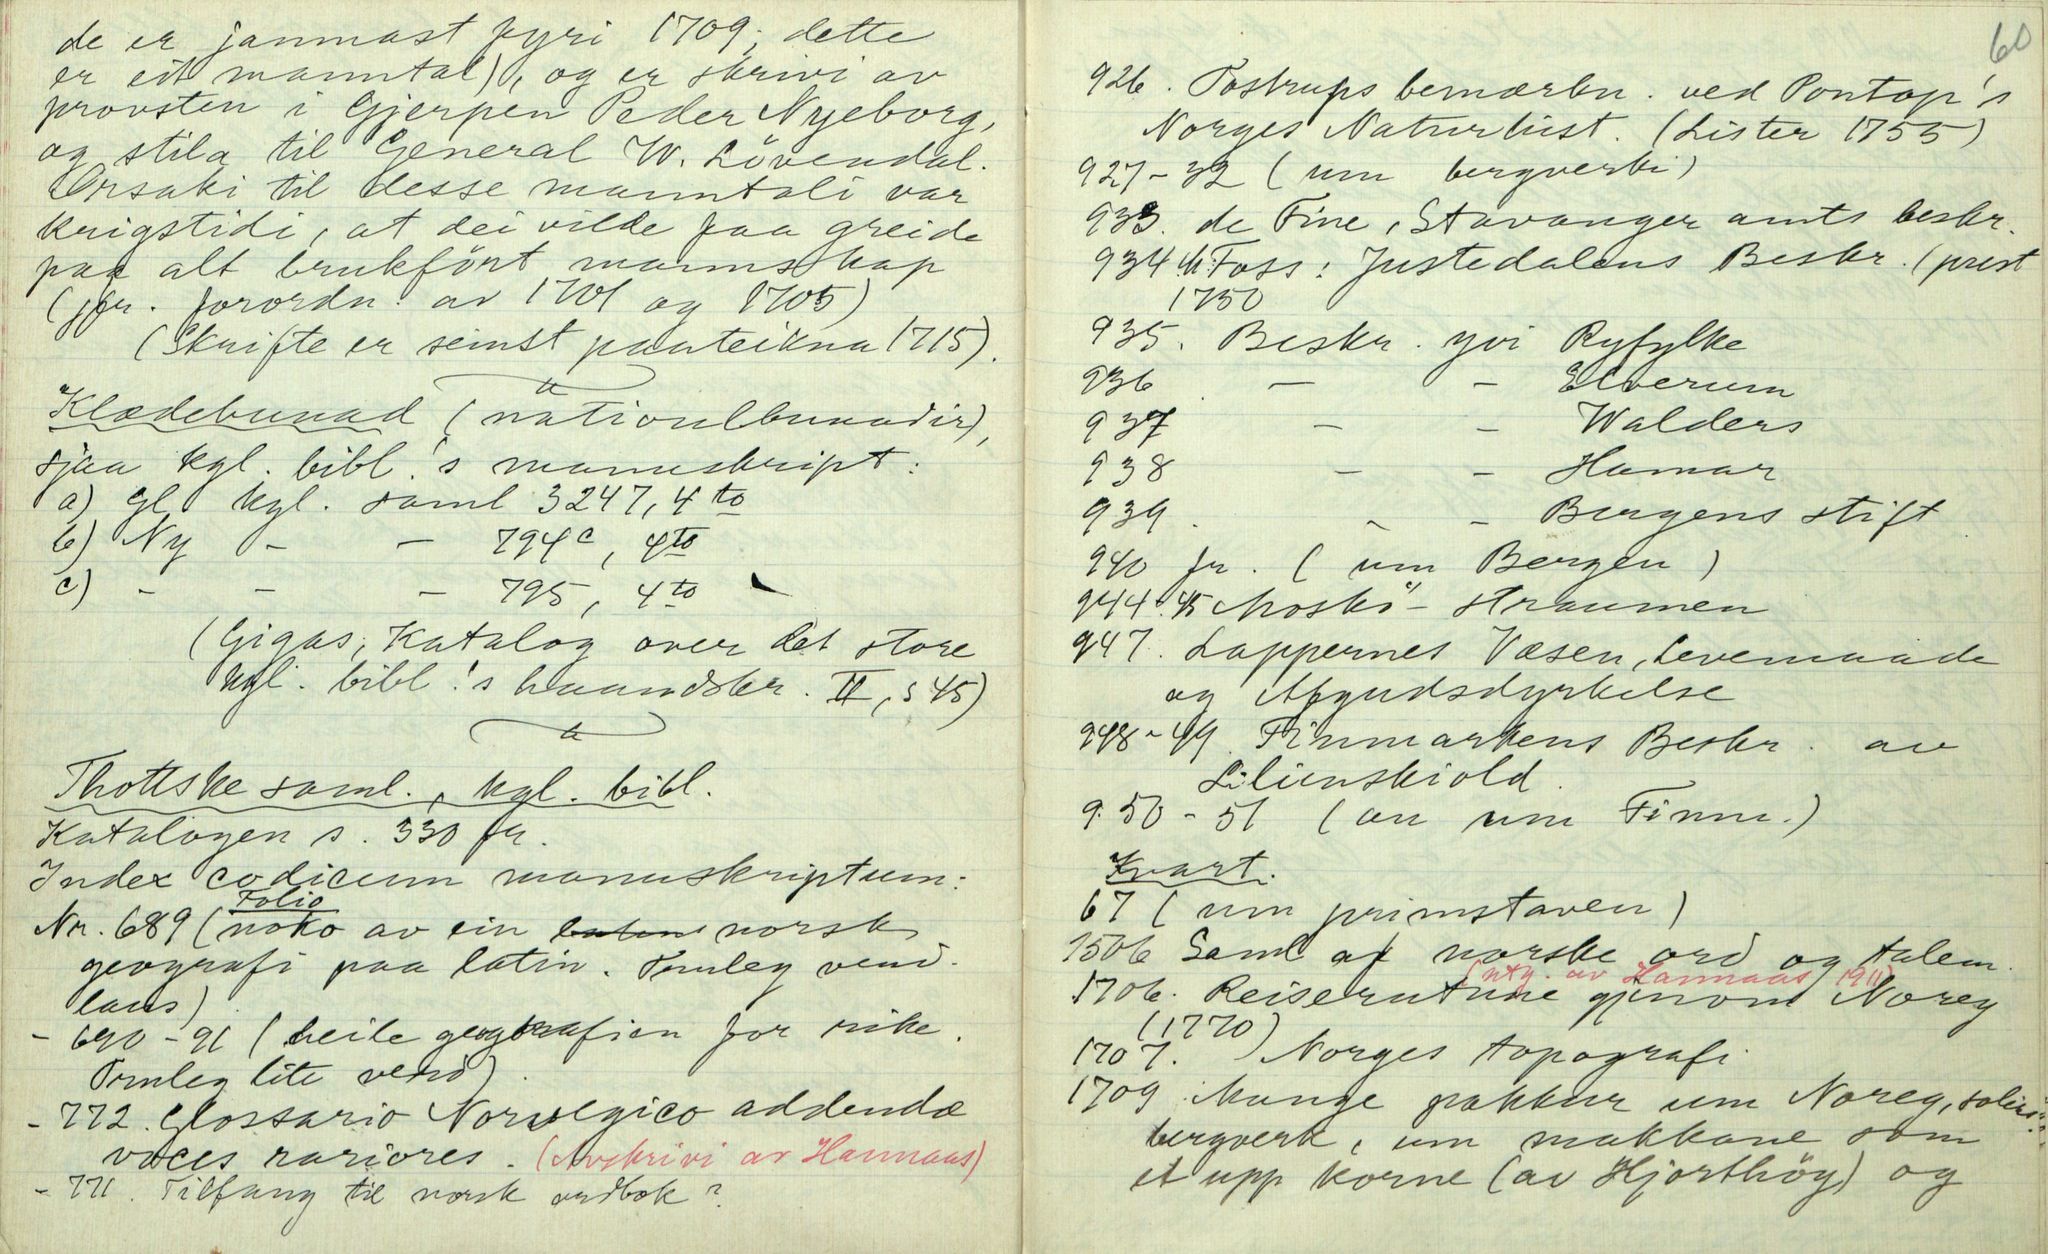 de er janmast fyri 1709; dette
er eit manntal), og er skrivi av
provsten i Gjerpen Peder Nyeborg,
og stila til General W. Lövendal.
Orsaki til desse manntali var
krigstidi, at dei vilde faa greide
paa alt brukført mannskap
(jfr. forordn. av 1701 og 1705)
(Skrifte er seinst paateikna 1715).
Klædebunad (nationalbunadir),
sjaa kgl. bibl.'s manuskript:
a) Gl. kgl. saml 3247, 4to
b) Ny - - 794c, 4to
c) - - - 795, 4to
(Gigas, Katalog over det store
kgl. bibl.'s haandskr. II, s 45)
Thottske saml., kgl. bibl.
Katalogen s. 330 fr.
Index codicum manuskriptum:
Folio
Nr. 689 (noko av ein norsk
geografi paa latin. Truleg vend-
laus)
- 690-91 (heile geografien for rike.
Truleg lite verd)
- 772. Glossario Norvegico addendæ
voces rariores. (Avskrivi av Hannaas)
- 771. Tilfang til norsk ordbok?
60
926. Tostrups bemærkn. ved Pontop's
Norges Naturhist. (Lister 1755)
927-32 (um bergverki)
933. de Fine, Stavanger amts beskr.
934 M. Foss: Justedalens Beskr. (prest
1750
935. Beskr. yvi Ryfylke
936 - - Elverum
937 - - Walders
938 - - Hamar
939. - - Bergens stift
940 fr. (um Bergen)
944-45 Moskö-straumen
947. Lappernes Væsen, Levemaade
og Afgudsdyrkelse
948-49. Finmarkens Beskr. av
Lilienskiold.
950-51 (an um Finm.)
Kvart.
67 (um primstaven)
1506 Saml af norske ord og talem.
(utg. av Hannaas 1911)
1706. Reiserutune gjenom Noreg
(1770)
1707. Norges topografi.
1709. Mange pakkur um Noreg,
bergverk, um makkane som
et upp korne (av Hjorthöy) og